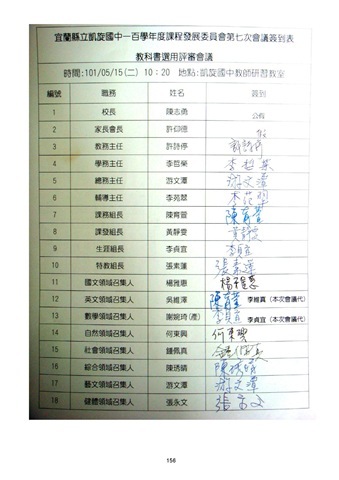 宜蘭縣立凱旋國中一百學年度課程發展委員會第七次會議簽到表
教科書選用評審會議
時間:101/05/15(二) 10:20 地點:凱旋國中教師研習教室
編號 職務 姓名 簽到
1 校長 陳志勇 公假
2 家長會長 許仰德 假
3 教務主任 許詩停
4 學務主任 李哲榮 李哲榮
5 總務主任 游文澤 游文澤
6 輔導主任 李苑翠
7 課務組長 陳育萱 陳育萱
8 課發組長 黃靜雯 黃靜雯
9 生涯組長 李貞宜 李貞宜
10 特教組長 張素蓮 張素蓮
11 國文領域召集人 楊雅惠 楊雅惠
12 英文領域召集人 吳維澤 陳育萱 李維真(本次會議代)
13 數學領域召集人 謝婉琦(產) 李貞宜 李貞宜(本次會議代)
14 自然領域召集人 何東興 何東興
15 社會領域召集人 鍾佩真
16 綜合領域召集人 陳琇晴 陳琇晴
17 藝文領域召集人 游文澤 游文澤
18 健體領域召集人 張永文 張永文
156